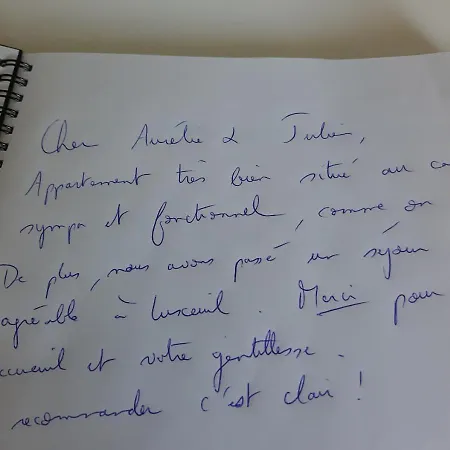 Cher Aurélie & Julien,
Appartement très bien situé au
sympa et fonctionnel, comme on
De plus, nous avons passé un séjour
agréable à Luxeuil. Merci pour
ccueil et votre gentillesse.
recommander c'est clair !